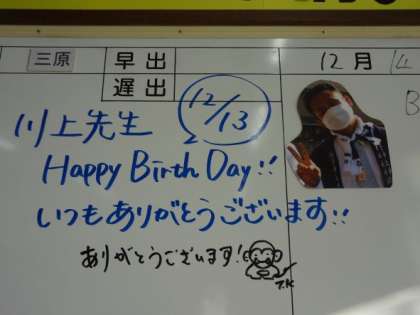 三原 早出 12月
遅出
12/13
川上先生
Happy Birth Day!!
いつもありがとうございます!!
ありがとうございます!
T.K